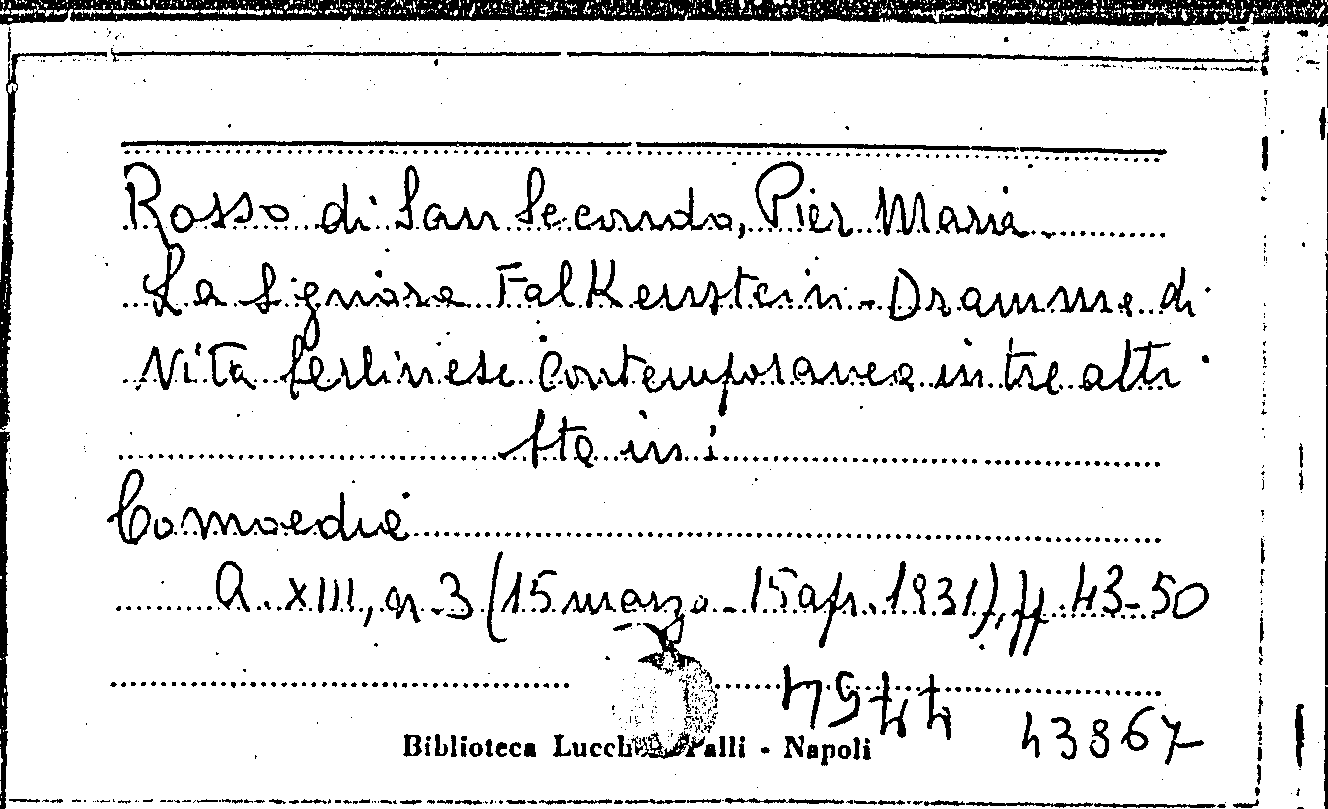 Rosso di San Secondo, Pier Maria
La Signora Falkenstein - Dramma di
vita berlinese contemporanea in tre atti
Comoedia
A. XIII, n. 3 (15 marzo - 15 apr. 1931), pp. 43-50
43867
Biblioteca Lucchesi Palli - Napoli